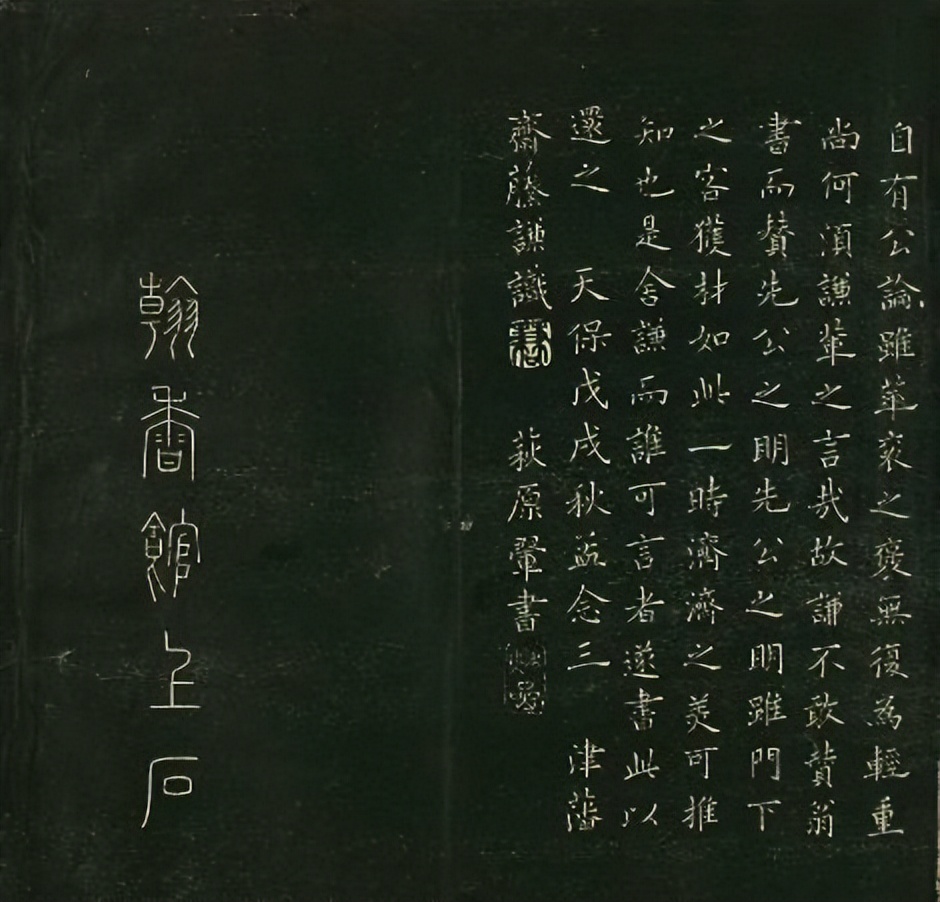 自有公論雖華袞之褒無復為輕重
尚何須謙輩之言哉故謙不敢贊翁
書而贊先公之明先公之明雖門下
之客獲材如此一時濟濟之美可推
知也是舍謙而誰可言者遂書此以
還之　天保戊戌秋孟念三　津藩
齋藤謙識　荻原翬書
翰香館上石